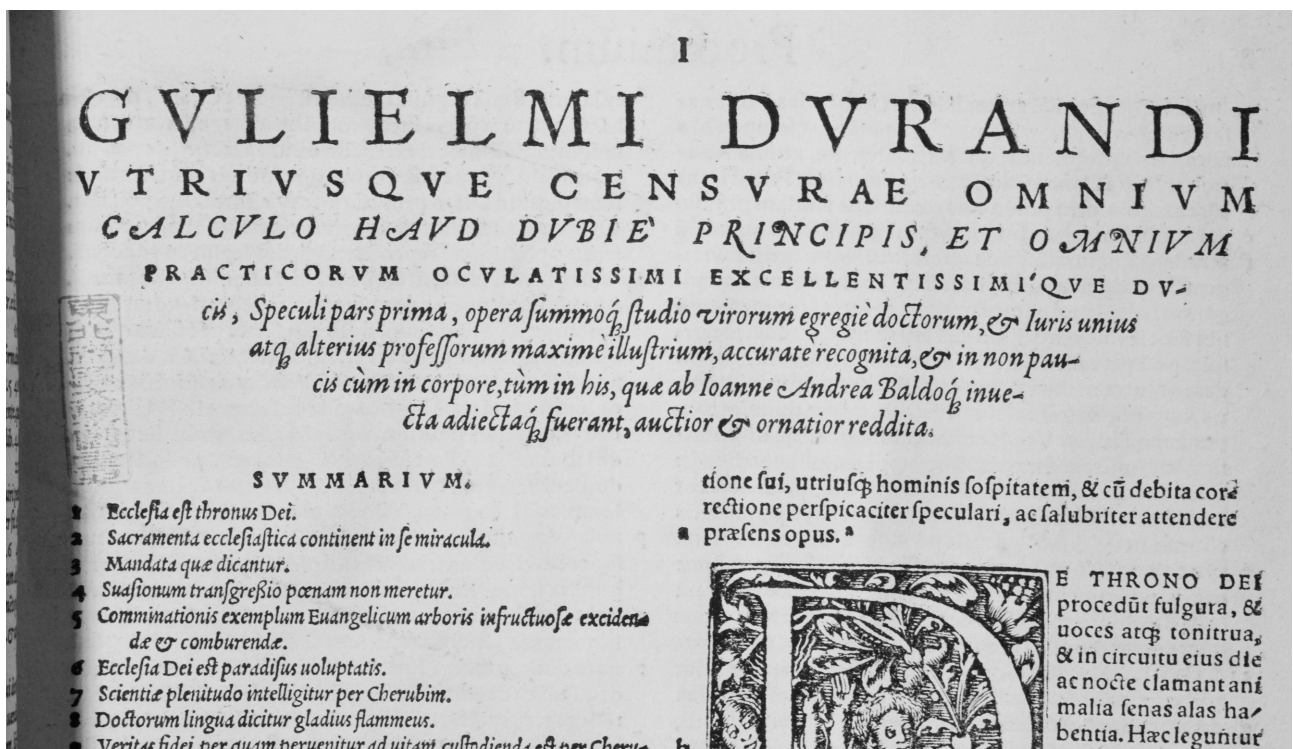 I
GVLIELMI DVRANDI
VTRIVSQVE CENSVRAE OMNIVM
CALCVLO HAVD DVBIE' PRINCIPIS, ET OMNIVM
PRACTICORVM OCVLATISSIMI EXCELLENTISSIMI'QVE DV-
cis, Speculi pars prima, opera summoq́; studio virorum egregiè doctorum, & Iuris unius
atq; alterius professorum maximè illustrium, accuratè recognita, & in non pau-
cis cùm in corpore, tùm in his, quæ ab Ioanne Andrea Baldoq́; inue-
cta adiectaq́; fuerant, auctior & ornatior reddita.
SVMMARIVM.
1 Ecclesia est thronus Dei.
2 Sacramenta ecclesiastica continent in se miracula.
3 Mandata quæ dicantur.
4 Suasionum transgreßio pœnam non meretur.
5 Comminationis exemplum Euangelicum arboris infructuosæ exciden-
dæ & comburendæ.
6 Ecclesia Dei est paradisus uoluptatis.
7 Scientiæ plenitudo intelligitur per Cherubim.
8 Doctorum lingua dicitur gladius flammeus.
9 Veritas fidei, per quam peruenitur ad uitam, custodienda est per Cheru-
tione sui, utriusq; hominis sospitatem, & cū debita cor-
rectione perspicaciter speculari, ac salubriter attendere
a præsens opus. a
DE THRONO DEI
procedūt fulgura, &
uoces atq; tonitrua,
& in circuitu eius die
ac nocte clamant ani
malia senas alas ha-
b bentia. Hæc leguntur
東北